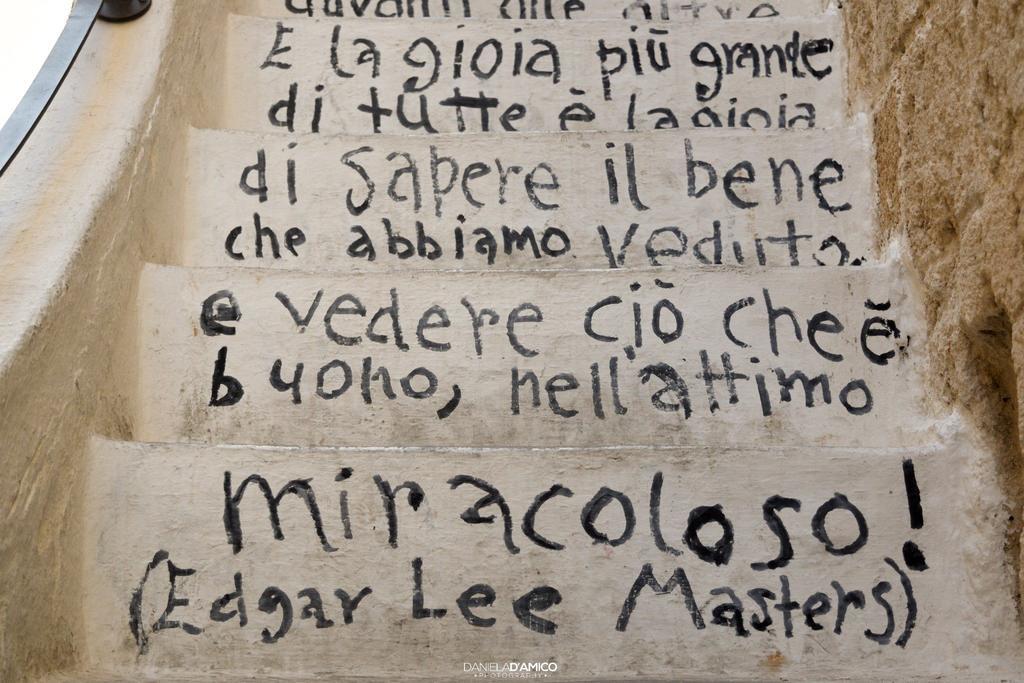 davanti alle altre
E la gioia più grande
di tutte è la gioia
di sapere il bene
che abbiamo veduto,
e vedere ciò che è
buono, nell'attimo
miracoloso!
(Edgar Lee Masters)
DANIELA D'AMICO
PHOTOGRAPHY